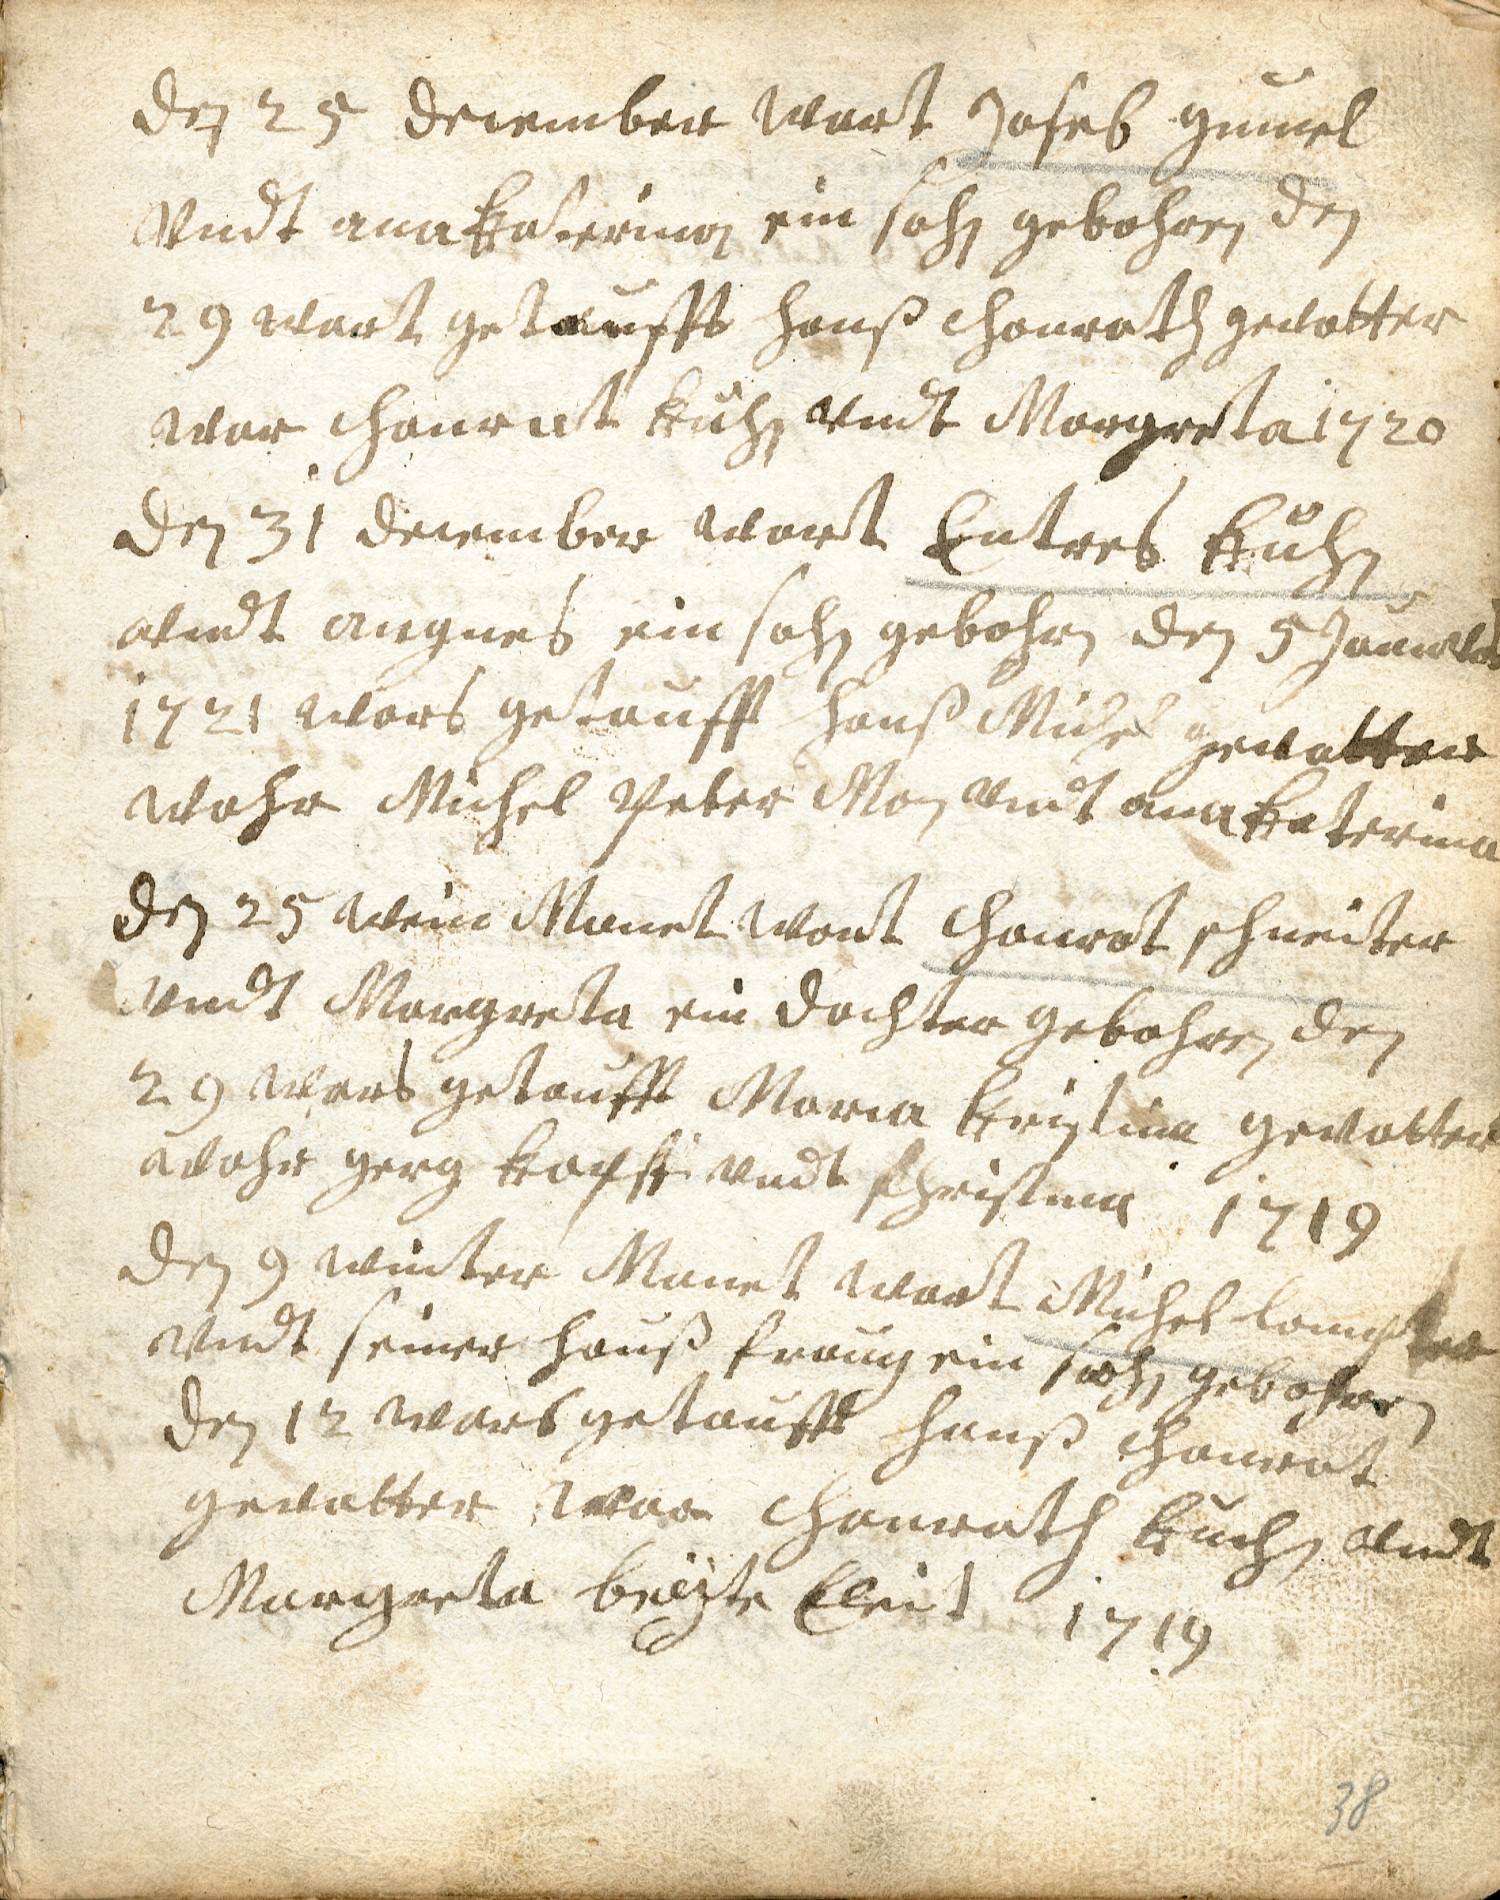 den 25 december wart Joseb gumel
Vndt anakaterina ein sohn gebohren den
29 wart getaufft hanß chonrath gevatter
war chonrat kuhn vndt Margreta 1720
den 31 december wart Entres kuhn
vndt angnes ein sohn gebohrn den 5
1721 wars getaufft hanß Michel gevatter
wahr Michel Peter Man vndt anakaterina
den 25 wein Manet wart chonrat schneiter
vndt Margreta ein dochter gebohren den
29 wars getaufft Maria kristina gevatter
wahr gerg kapff vndt christina 1719
den 9 winter Manet wart Michel
vndt seiner hauß fraug ein sohn gebohren
den 12 wars getaufft hanß chonrat
gevatter war chonrath kuchn vndt
Margreta beyte Eleit 1719
38